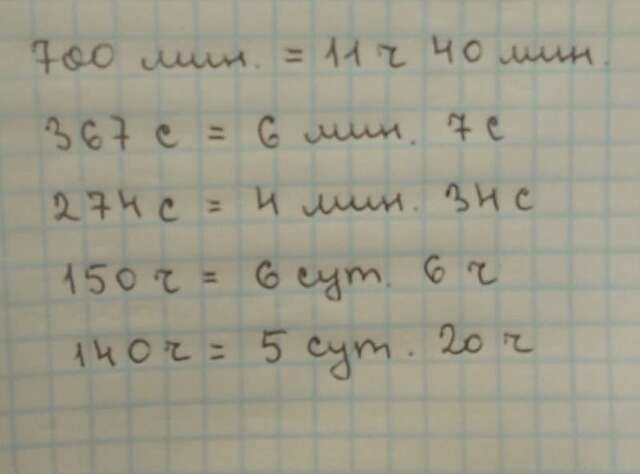 700 мин. = 11 ч 40 мин.
367 с = 6 мин. 7 с
274 с = 4 мин. 34 с
150 ч = 6 сут. 6 ч
140 ч = 5 сут. 20 ч